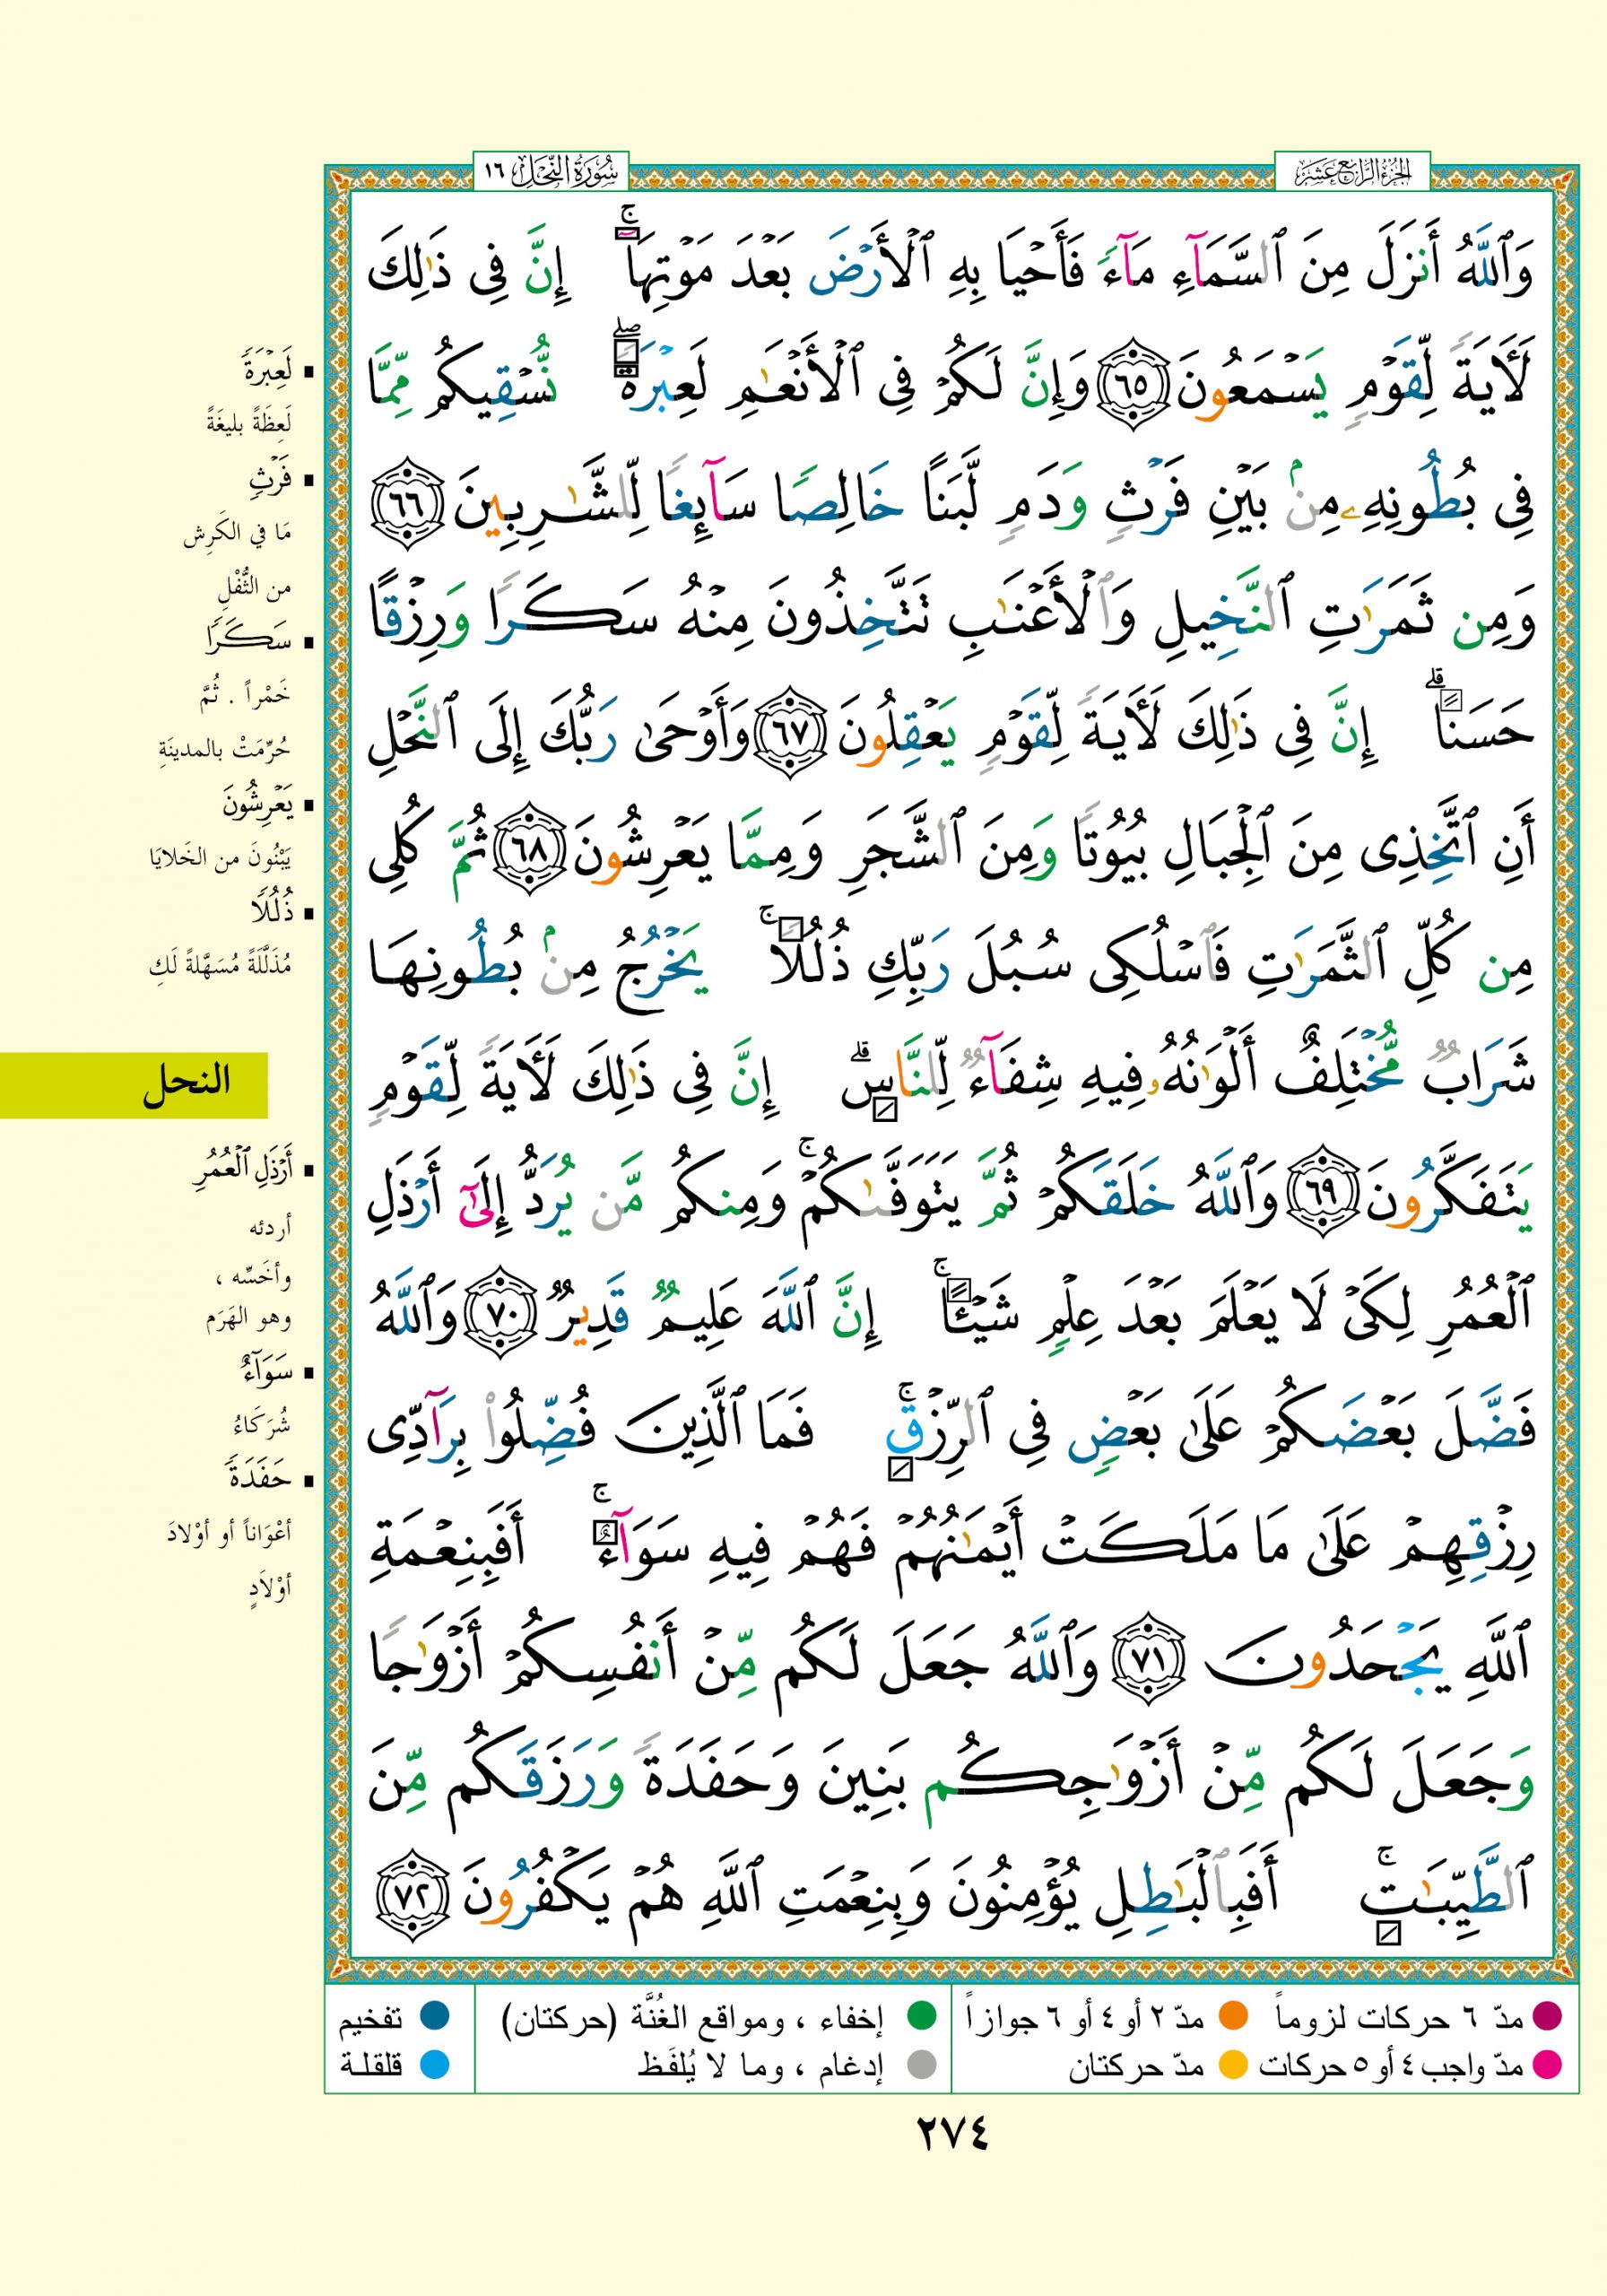 الجزء الرابع عشر
سورة النحل ١٦
وَٱللَّهُ أَنزَلَ مِنَ ٱلسَّمَآءِ مَآءً فَأَحْيَا بِهِ ٱلْأَرْضَ بَعْدَ مَوْتِهَآ ۚ إِنَّ فِى ذَٰلِكَ
لَـَٔايَةً لِّقَوْمٍ يَسْمَعُونَ ٦٥ وَإِنَّ لَكُمْ فِى ٱلْأَنْعَـٰمِ لَعِبْرَةً ۖ نُّسْقِيكُم مِّمَّا
فِى بُطُونِهِۦ مِنۢ بَيْنِ فَرْثٍ وَدَمٍ لَّبَنًا خَالِصًا سَآئِغًا لِّلشَّـٰرِبِينَ ٦٦
وَمِن ثَمَرَٰتِ ٱلنَّخِيلِ وَٱلْأَعْنَـٰبِ تَتَّخِذُونَ مِنْهُ سَكَرًا وَرِزْقًا
حَسَنًا ۗ إِنَّ فِى ذَٰلِكَ لَـَٔايَةً لِّقَوْمٍ يَعْقِلُونَ ٦٧ وَأَوْحَىٰ رَبُّكَ إِلَى ٱلنَّحْلِ
أَنِ ٱتَّخِذِى مِنَ ٱلْجِبَالِ بُيُوتًا وَمِنَ ٱلشَّجَرِ وَمِمَّا يَعْرِشُونَ ٦٨ ثُمَّ كُلِى
مِن كُلِّ ٱلثَّمَرَٰتِ فَٱسْلُكِى سُبُلَ رَبِّكِ ذُلُلًا ۚ يَخْرُجُ مِنۢ بُطُونِهَا
شَرَابٌ مُّخْتَلِفٌ أَلْوَٰنُهُۥ فِيهِ شِفَآءٌ لِّلنَّاسِ ۗ إِنَّ فِى ذَٰلِكَ لَـَٔايَةً لِّقَوْمٍ
يَتَفَكَّرُونَ ٦٩ وَٱللَّهُ خَلَقَكُمْ ثُمَّ يَتَوَفَّىٰكُمْ ۚ وَمِنكُم مَّن يُرَدُّ إِلَىٰٓ أَرْذَلِ
ٱلْعُمُرِ لِكَىْ لَا يَعْلَمَ بَعْدَ عِلْمٍ شَيْـًٔا ۚ إِنَّ ٱللَّهَ عَلِيمٌ قَدِيرٌ ٧٠ وَٱللَّهُ
فَضَّلَ بَعْضَكُمْ عَلَىٰ بَعْضٍ فِى ٱلرِّزْقِ ۚ فَمَا ٱلَّذِينَ فُضِّلُوا۟ بِرَآدِّى
رِزْقِهِمْ عَلَىٰ مَا مَلَكَتْ أَيْمَـٰنُهُمْ فَهُمْ فِيهِ سَوَآءٌ ۚ أَفَبِنِعْمَةِ
ٱللَّهِ يَجْحَدُونَ ٧١ وَٱللَّهُ جَعَلَ لَكُم مِّنْ أَنفُسِكُمْ أَزْوَٰجًا
وَجَعَلَ لَكُم مِّنْ أَزْوَٰجِكُم بَنِينَ وَحَفَدَةً وَرَزَقَكُم مِّنَ
ٱلطَّيِّبَـٰتِ ۚ أَفَبِٱلْبَـٰطِلِ يُؤْمِنُونَ وَبِنِعْمَتِ ٱللَّهِ هُمْ يَكْفُرُونَ ٧٢
لَعِبْرَةً
لَعِظَةً بليغَةً
فَرْثٍ
مَا في الكَرِش
من الثُّفْلِ
سَكَرًا
خَمْراً . ثُمَّ
حُرِّمَتْ بالمدينَةِ
يَعْرِشُونَ
يَبْنُونَ من الخَلايَا
ذُلُلًا
مُذَلَّلَةً مُسَهَّلةً لَكِ
النحل
أَرْذَلِ ٱلْعُمُرِ
أردئه
وأخَسِّه ،
وهو الهَرَم
سَوَآءٌ
شُرَكَاءُ
حَفَدَةً
أعْوَاناً أو أوْلادَ
أوْلاَدٍ
مدّ ٦ حركات لزوماً
مدّ ٢ أو ٤ أو ٦ جوازاً
إخفاء ، ومواقع الغُنَّة (حركتان)
تفخيم
مدّ واجب ٤ أو ٥ حركات
مدّ حركتان
إدغام ، وما لا يُلفَظ
قلقلة
٢٧٤